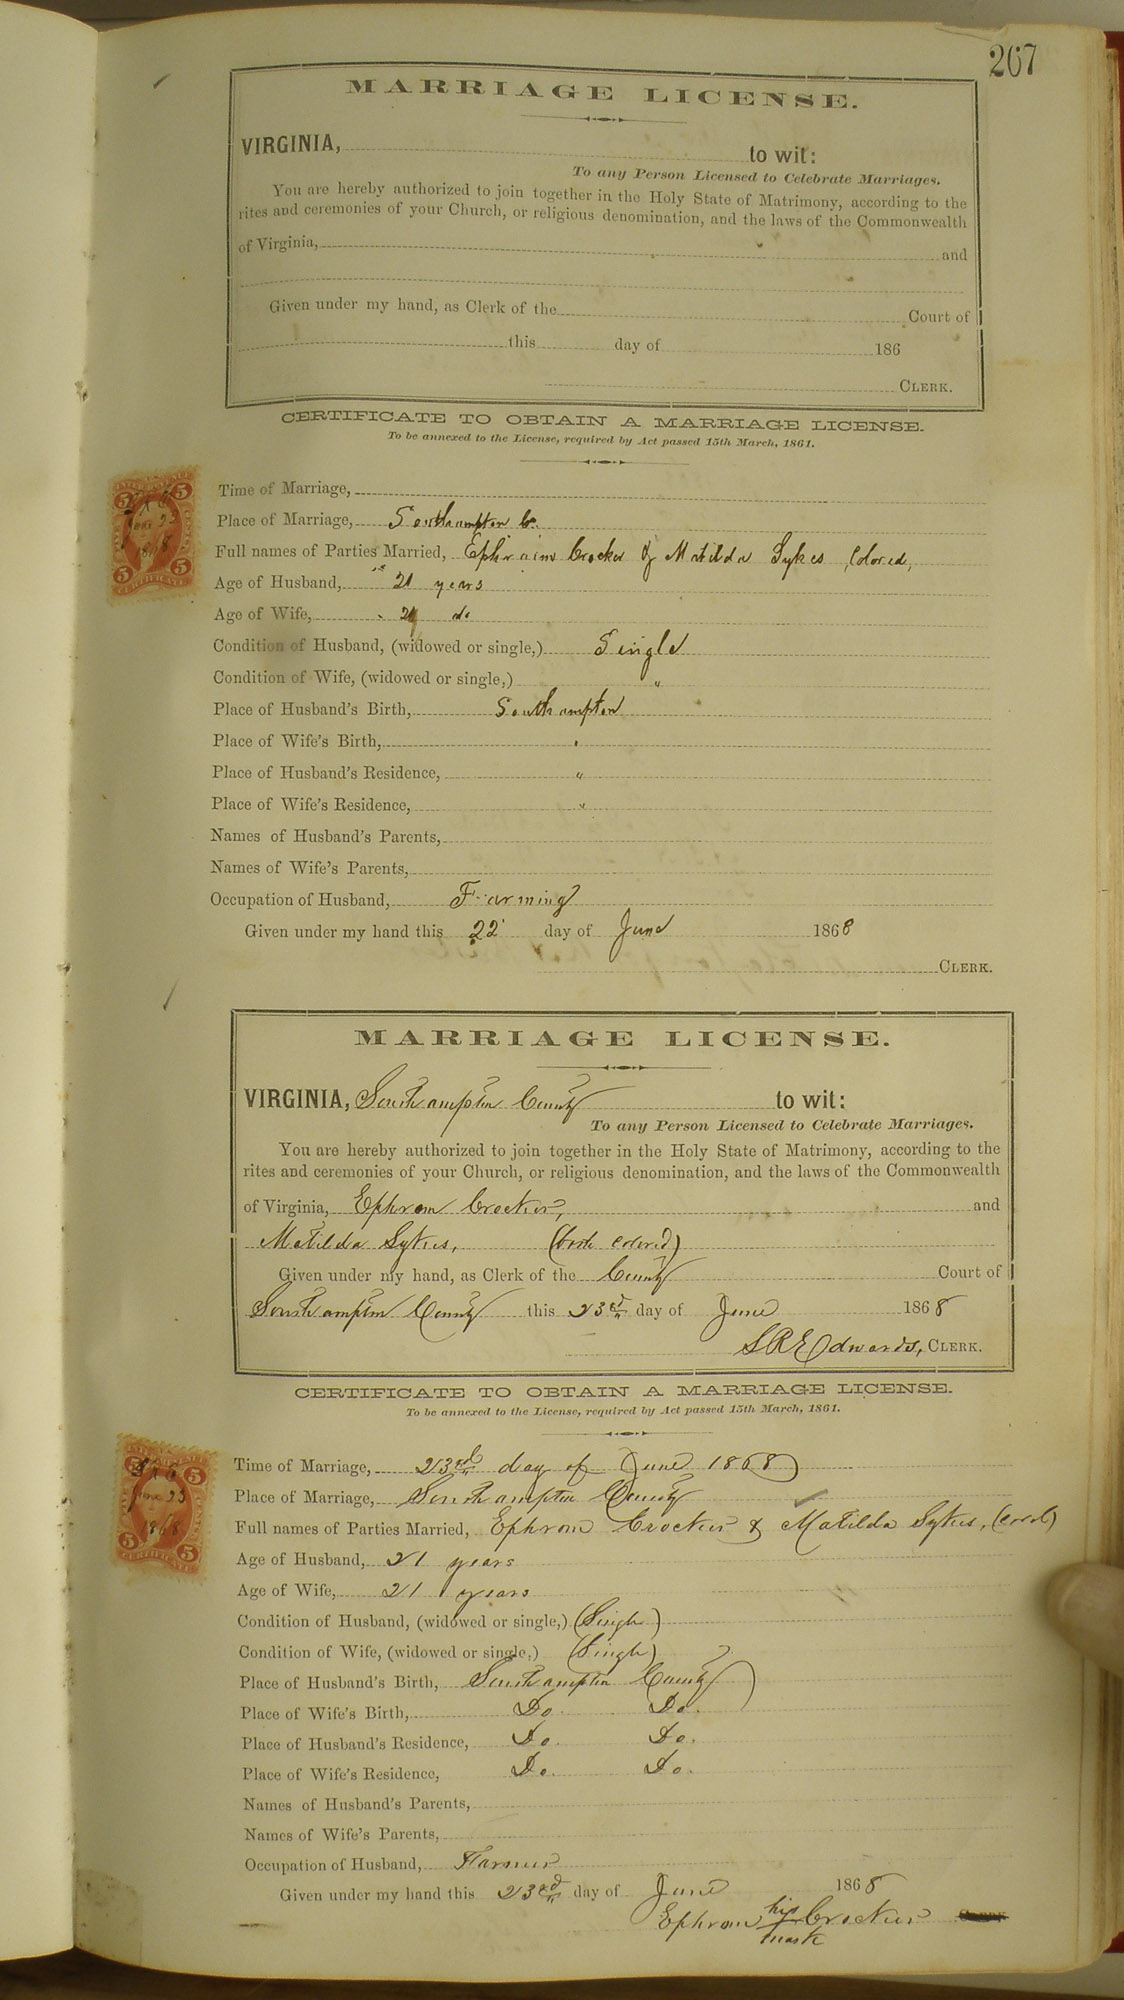 267
MARRIAGE LICENSE.
VIRGINIA, to wit:
To any Person Licensed to Celebrate Marriages.
You are hereby authorized to join together in the Holy State of Matrimony, according to the
rites and ceremonies of your Church, or religious denomination, and the laws of the Commonwealth
of Virginia, and
Given under my hand, as Clerk of the Court of
this day of 186
CLERK.
CERTIFICATE TO OBTAIN A MARRIAGE LICENSE.
To be annexed to the License, required by Act passed 15th March, 1861.
Time of Marriage,
Place of Marriage, Southampton Co.
Full names of Parties Married, Ephraim Crocker & Matilda Sykes, Colored,
Age of Husband, 21 years
Age of Wife, 21 do
Condition of Husband, (widowed or single,) Single
Condition of Wife, (widowed or single,) "
Place of Husband's Birth, Southampton
Place of Wife's Birth, "
Place of Husband's Residence, "
Place of Wife's Residence, "
Names of Husband's Parents,
Names of Wife's Parents,
Occupation of Husband, Farming
Given under my hand this 22 day of June 1868
CLERK.
MARRIAGE LICENSE.
VIRGINIA, Southampton County to wit:
To any Person Licensed to Celebrate Marriages.
You are hereby authorized to join together in the Holy State of Matrimony, according to the
rites and ceremonies of your Church, or religious denomination, and the laws of the Commonwealth
of Virginia, Ephrom Crocker, and
Matilda Sykes, (both colored)
Given under my hand, as Clerk of the County Court of
Southampton County this 23rd day of June 1868
LRE Edwards, CLERK.
CERTIFICATE TO OBTAIN A MARRIAGE LICENSE.
To be annexed to the License, required by Act passed 15th March, 1861.
5 5
June 23
1868
5 5
CERTIFICATE
Time of Marriage, 23rd day of June 1868
Place of Marriage, Southampton County
Full names of Parties Married, Ephrom Crocker & Matilda Sykes, (cold)
Age of Husband, 21 years
Age of Wife, 21 years
Condition of Husband, (widowed or single,) (Single)
Condition of Wife, (widowed or single,) (Single)
Place of Husband's Birth, Southampton County
Place of Wife's Birth, Do. Do.
Place of Husband's Residence, Do. Do.
Place of Wife's Residence, Do. Do.
Names of Husband's Parents,
Names of Wife's Parents,
Occupation of Husband, Farmer
Given under my hand this 23rd day of June 1868
Ephrom his mark Crocker